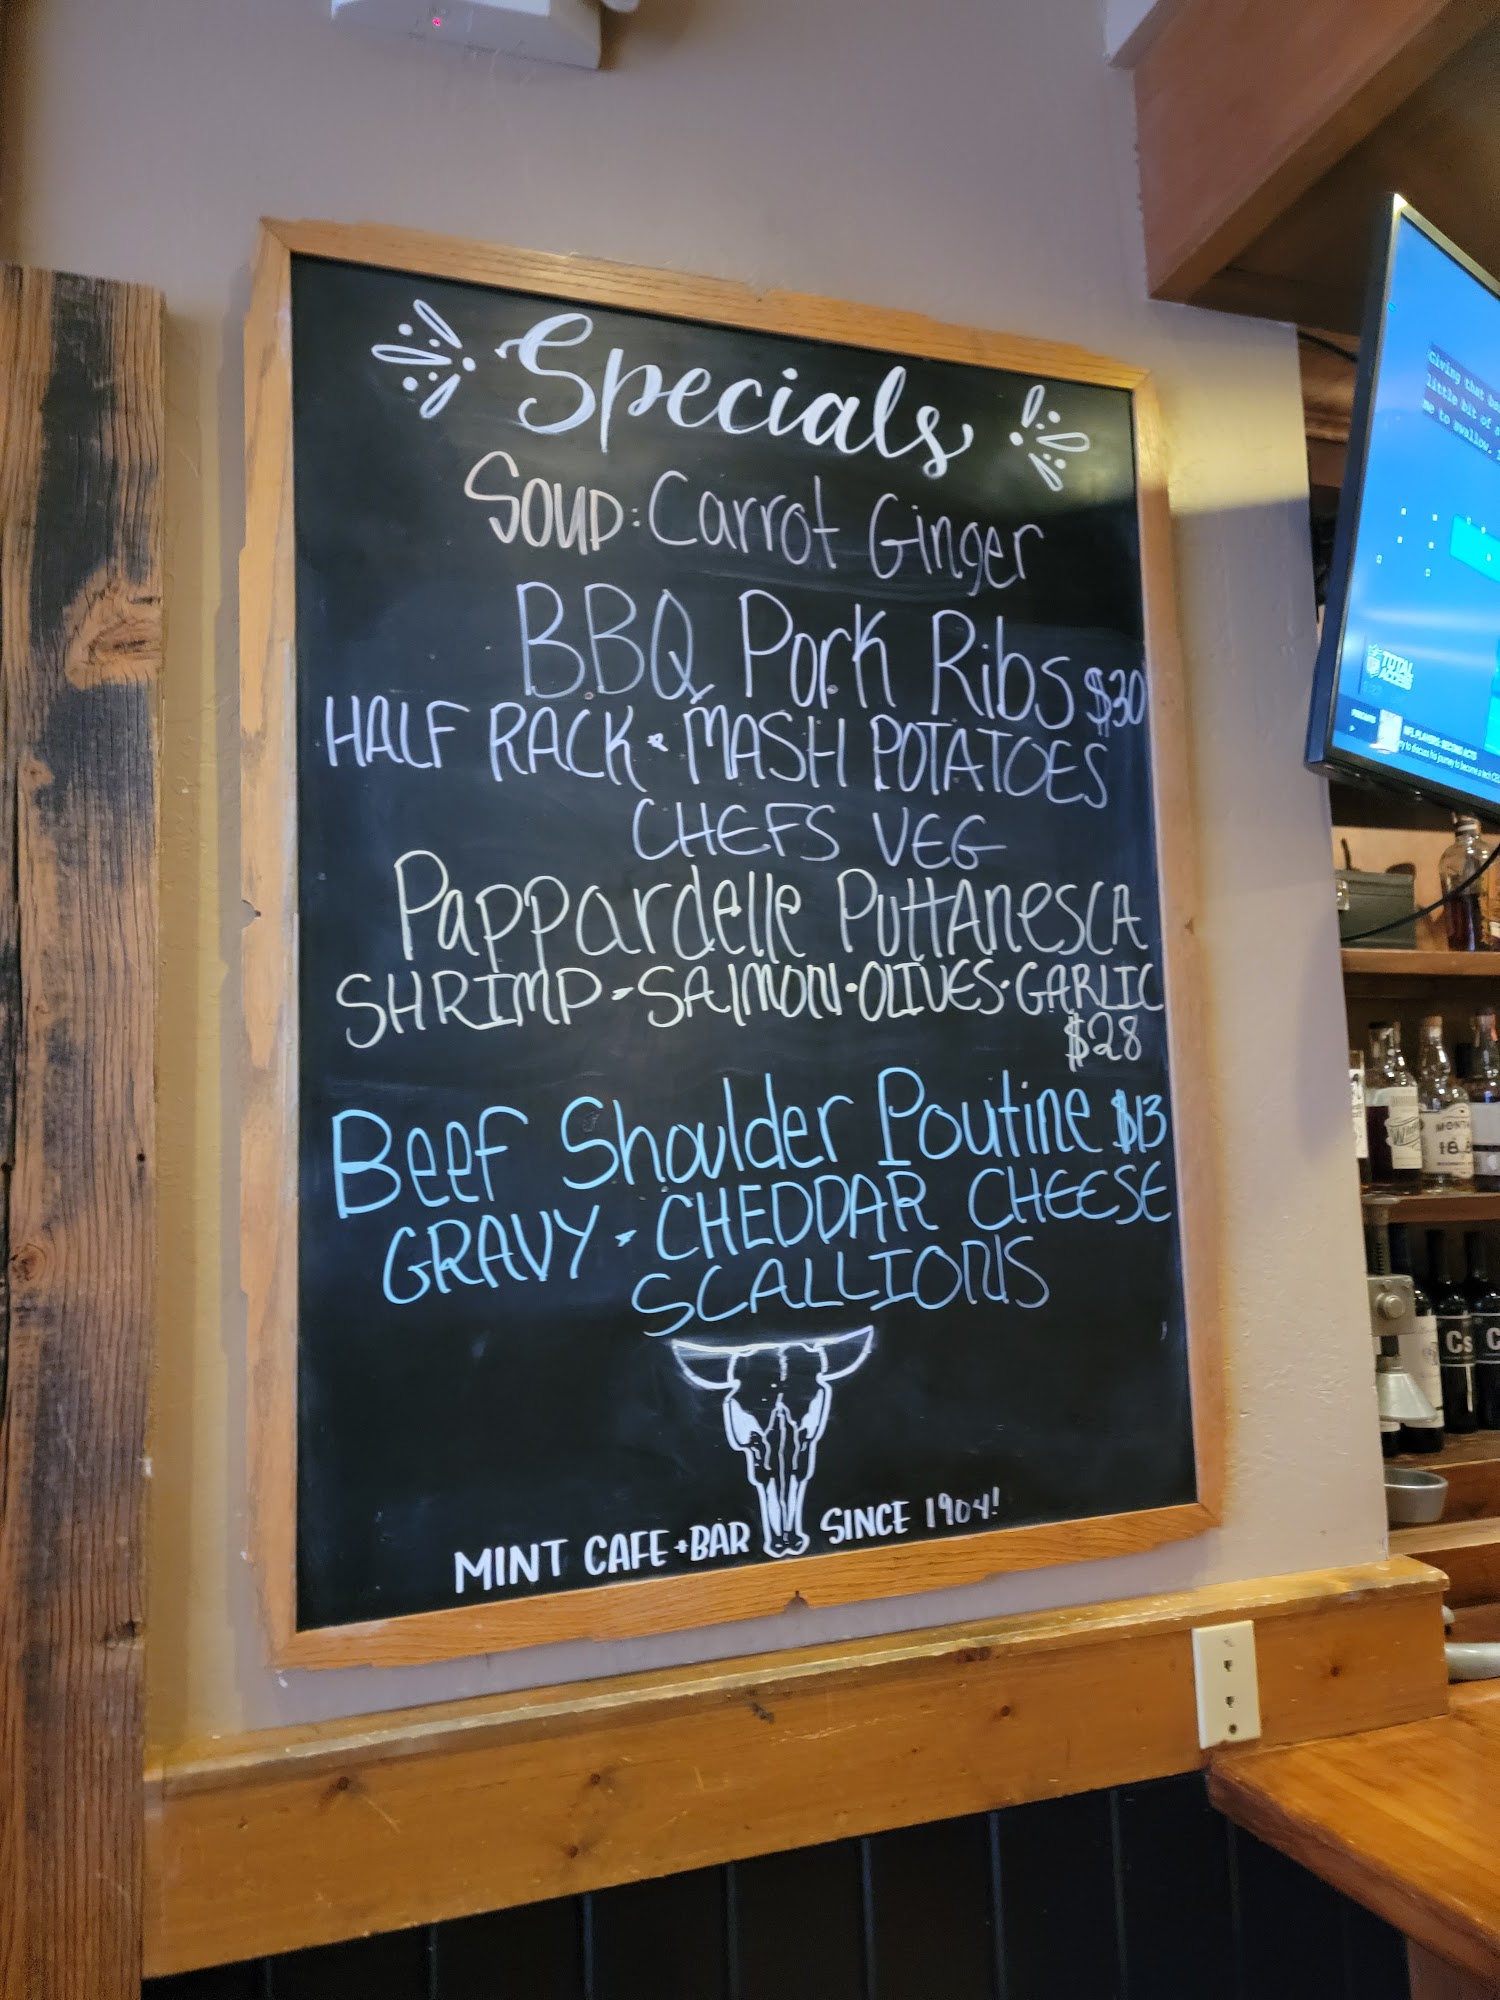 Specials
Soup: Carrot Ginger
BBQ Pork Ribs $30
HALF RACK · MASH POTATOES
CHEFS VEG
Pappardelle Puttanesca
SHRIMP · SALMON · OLIVES · GARLIC
$28
Beef Shoulder Poutine $13
GRAVY · CHEDDAR CHEESE
SCALLIONS
MINT CAFE + BAR SINCE 1904!
Giving that
little bit of
me to swallow.
TOTAL
ACCESS
NFL PLAYERS: SECOND ACTS
to discuss his journey to become a tech
MONT
Cs
C